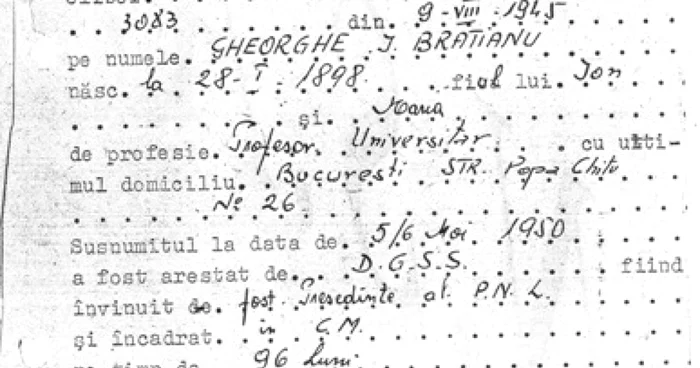 3083 din 9-VIII-1945
pe numele. GHEORGHE I. BRĂTIANU
născ. la 28-I-1898. fiul lui. Ion
și. Maria
de profesie. Profesor. Universitar. cu ulti-
mul domiciliu. București STR. Popa Chițu
No 26
Susnumitul la data de. 5/6 Mai 1950
a fost arestat de. D.G.S.S. fiind
învinuit de. fost Președinte al P.N.L.
și încadrat. in C.M.
pe timp de 96 luni